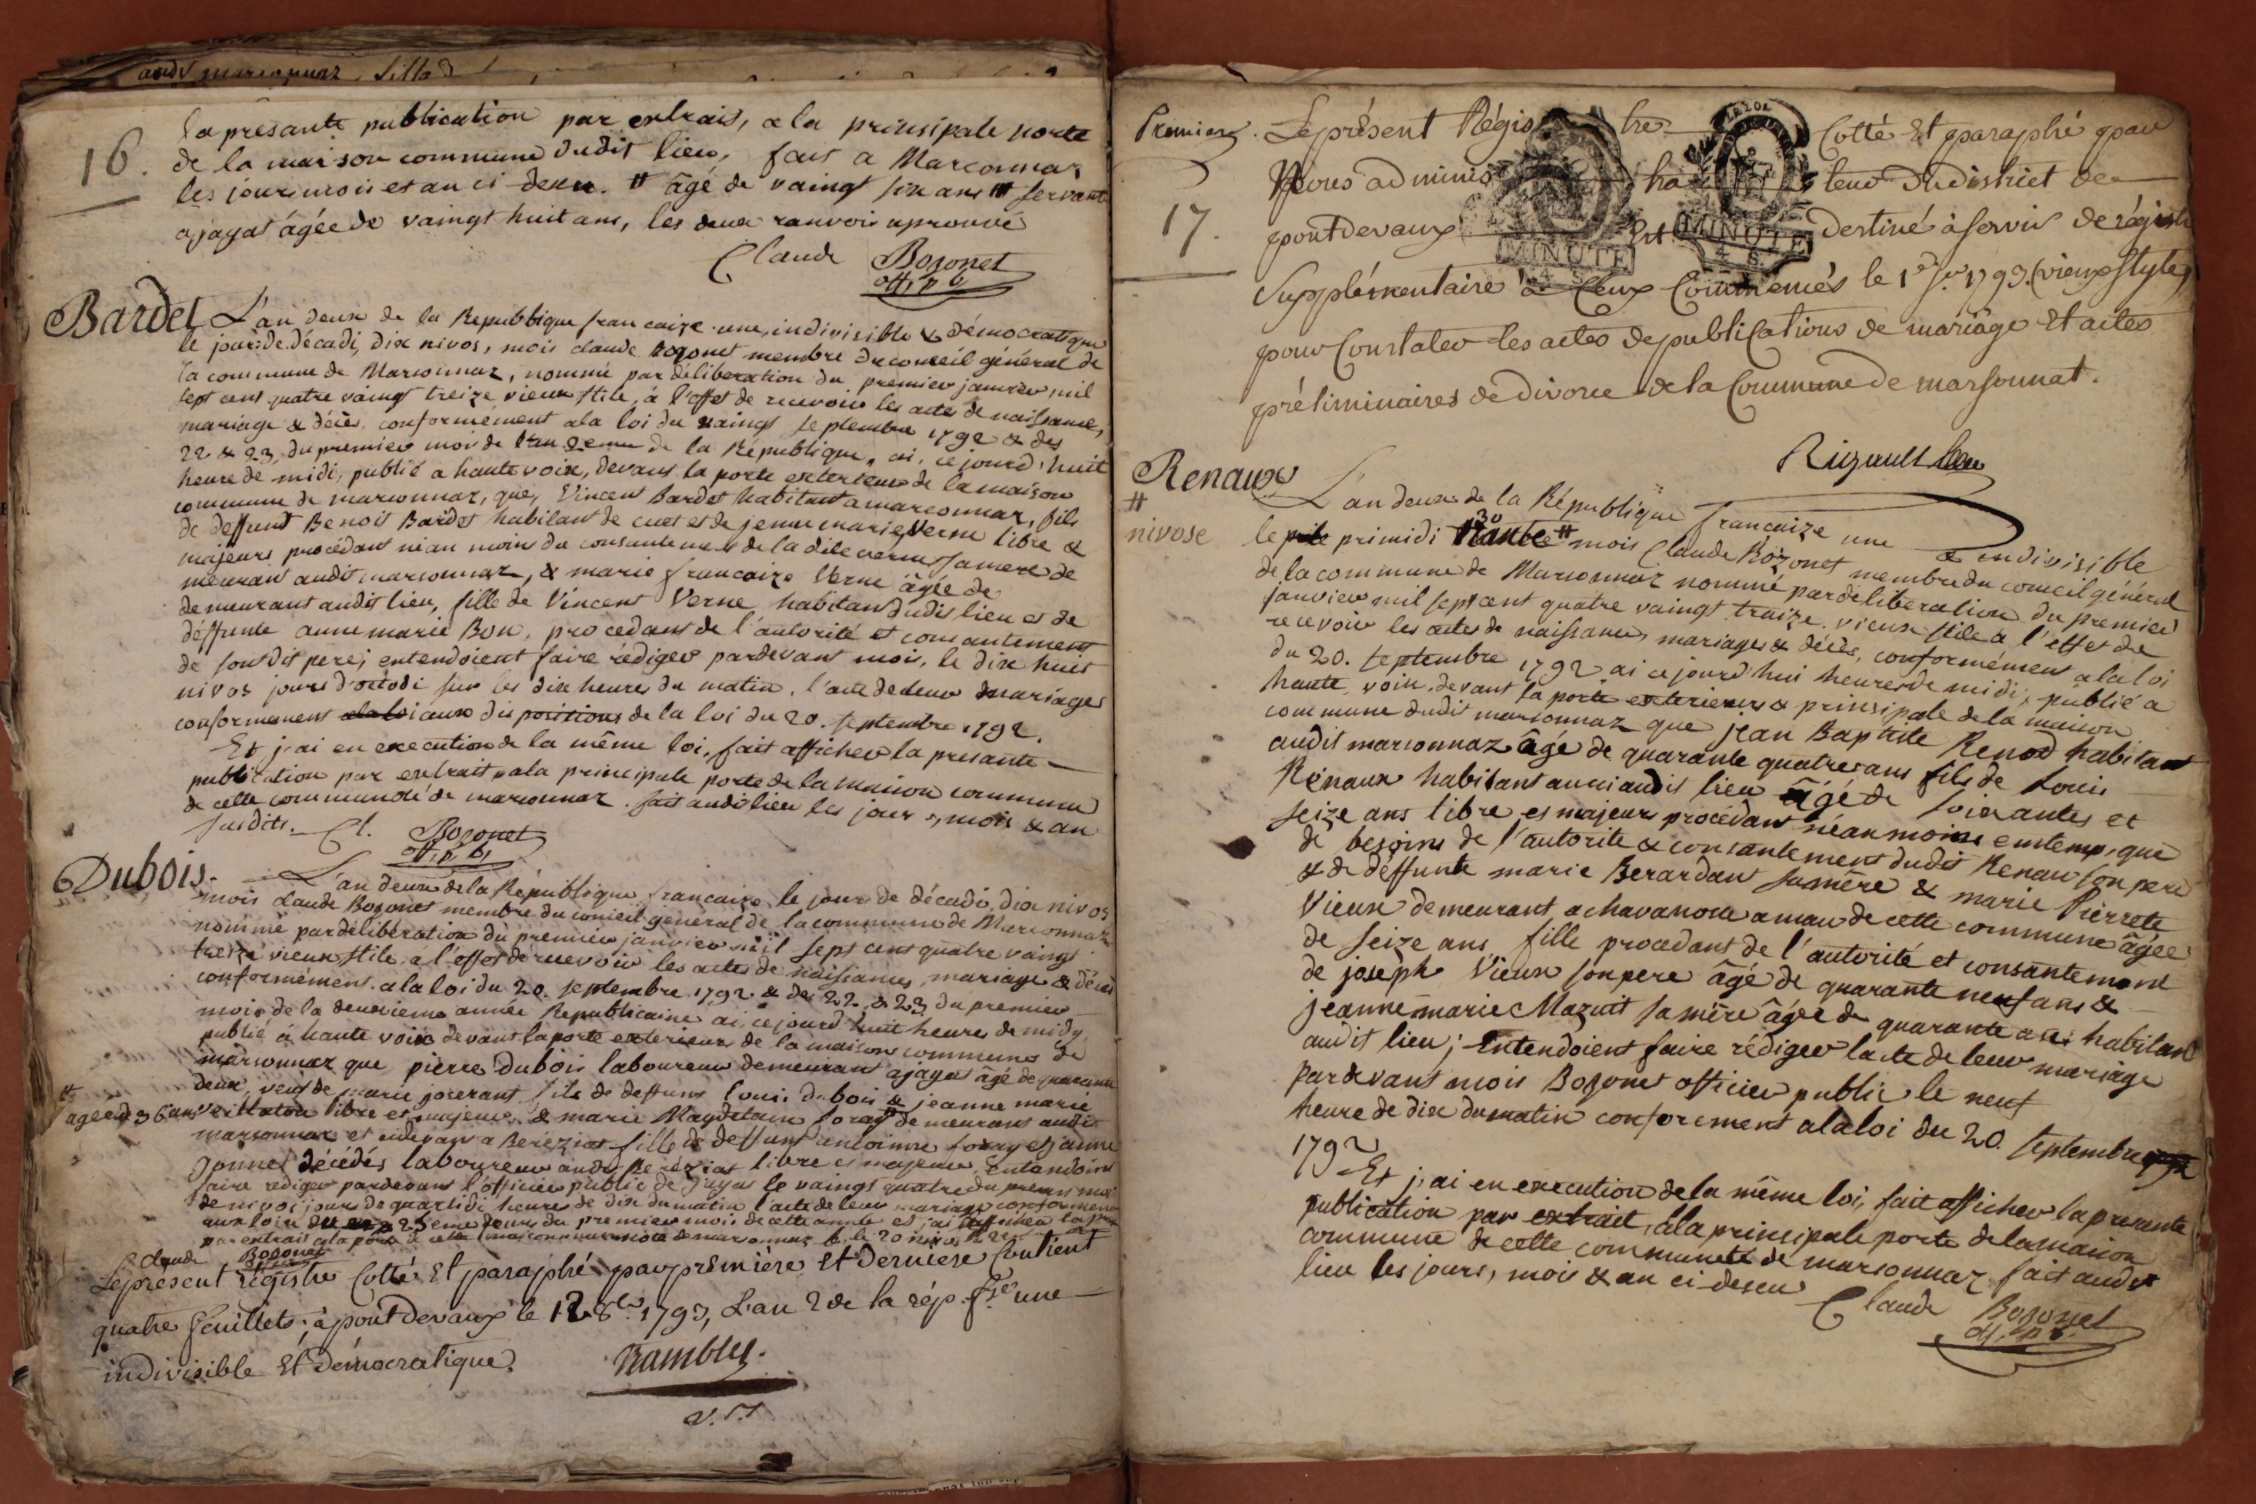 audit marconnaz, fille d
16.
la presante publication par extrais, a la prinsipale porte
de la maison commune dudit lieu, fait a Marconnaz
les jour mois et an ci-desu. # âgé de vaingt six ans # servante
ajayat âgée de vaingt huit ans, les deux ranvoir aprouvé
Claude Bozonet
off. p. b
Bardet
L'an deux de la Republique francaize une, indivisible & démocratique
le jour de décadi, dix nivos, mois claude bozonet membre du conseil général de
la commune de Marconnaz, nommé par déliberation du premier janvier mil
sept cent quatre vaingt treize vieux stile, à l'effet de recevoir les acte de naissance,
mariage & décès, conformément ala loi du vaingt septembre 1792 & des
22 & 23, du premier mois de l'an 2eme de la République, ai, ce jourd'huit
heure de midi, publié a haute voix, devant la porte exterieure de la maison
commune de marconnaz, que, Vincent Bardet habitant a marconnaz, fils
de deffunt Benoit Bardet habitant de cuet et de jenne marie Verne libre &
majeurs procédant néan moins du consantement de la dite verne sa mere de
meurant audit marconnaz, & marie francaize Verne âgée de
demeurant audit lieu, fille de Vincent Verne habitant dudit lieu et de
déffunte anne marie Bon, procedant de l'autorité et consantement
de son dit pere; entendoient faire rédiger pardevant mois, le dix huit
nivos jours d'octodi sur les dix heures du matin, l'acte de leur mariages
conformement ala loi aux dispositions de la loi du 20. septembre 1792.
Et j'ai en execution de la même loi, fait afficher la presante
publication par extrait, ala principale porte de la maison commune
de cette communoté de marconnaz. fait audit lieu les jours, mois & an
susdits. Cl. Bozonet
off. p. b,
Dubois.
L'an deux de la République francaize, le jour de décadi, dix nivos
mois claude Bozonet membre du conseil général de la commune de Marconnaz
nommé par déliberation du premier janvier mil sept cent quatre vaingt
treize vieux stile, a l'effet de recevoir les actes de naissances, mariage & décès
conformément ala loi du 20. septembre 1792 & des 22. & 23 du premier
mois de la deuxieme année Republicaine ai, ce jourd'huit heure de midy
publié à haute voix devant la porte exterieur de la maison commune de
marsonnaz que pierre dubois laboureur demeurant ajayat âgé de quarante
deux, veuf de marie joserant fils de deffunt louis dubois & jeanne marie
#
agée de 36 ans
libre et majeur, & marie Magdelaine foray # demeurant audit
marsonnaz et cidevant a Bereziat fille de deffunt antoinne foray et janne
Gonnet décédés laboureur audit Béréziat libre et majeure, Entandoient
faire rediger pardevant l'officier public de Jayat le vaingt quatre du présent mois
de nivos jour de quartidi heure de dix du matin l'acte de leur mariage conformement
aux loix 23 eme jour du premier mois de cette année et j'ai affiché la pres.
par extrait a la porte de cette maison commune de marsonnaz
Claude Bozonet
Le présent registre Cotté Et paraphé par première et Derniere Contient
quatre feuillets; à pont Devaux le 12 8bre 1793, L'an 2 de la rép. fse une
indivisible Et démocratique.
Rambley.
Premier.
17.
Le présent Régistre Cotté Et paraphé par
Nous administrateur Du district de
pont devaux Est Destiné à servir de régistre
MINUTE
MINUTE
Supplémentaire à Ceux Commencés le 1er Jer 1793. (vieux Style)
pour Constater les actes de publications de mariage Et actes
préliminaires de Divorce de la Commune de marsonnat.
Rigault
Renaux
#
nivose
L'an deux de la République francaize une & indivisible
le primidi 30 # mois Claude Bozonet membre du conseil général
de la commune de Marconnaz nommé par déliberation du premier
janvier mil sept cent quatre vaingt traize vieux stile a l'effet de
recevoir les actes de naissances mariages & décès, conformément ala loi
du 20. septembre 1792 ai ce jourd'hui heure de midi, publié a
haute voix, devant la porte exterieurs & prinsipale de la maison
commune dudit marconnaz que jean Baptiste Renod habitant
audit marconnaz âgé de quarante quatre ans fils de Louis
Renaux habitant aussi audit lieu âgé de soixantes et
seize ans libre et majeurs procédant néan moins emtemps que
de besoins de l'autorite & consantement dudit Renau son pere
& de déffunte marie Berardan sa mère & marie Pierrete
Vieux demeurant a chavanosse amau de cette commune âgée
de seize ans fille procedant de l'autorité et consantement
de joseph Vieux son pere âgé de quarante neuf ans &
jeanne marie Mazuit sa mère âgée de quarante ans habitant
audit lieu; Entendoient faire rédiger lacte de leur mariage
pardevant mois Bozonet officier public le neuf
heure de dix du matin conforement ala loi du 20. septembre
1792
Et j'ai en execution de la même loi, fait afficher la presente
publication par extrait, ala principale porte de la maison
commune de cette communeté de marsonnaz fait audit
lieu les jours, mois & an ci-desu
Claude Bozonet
off. p b.